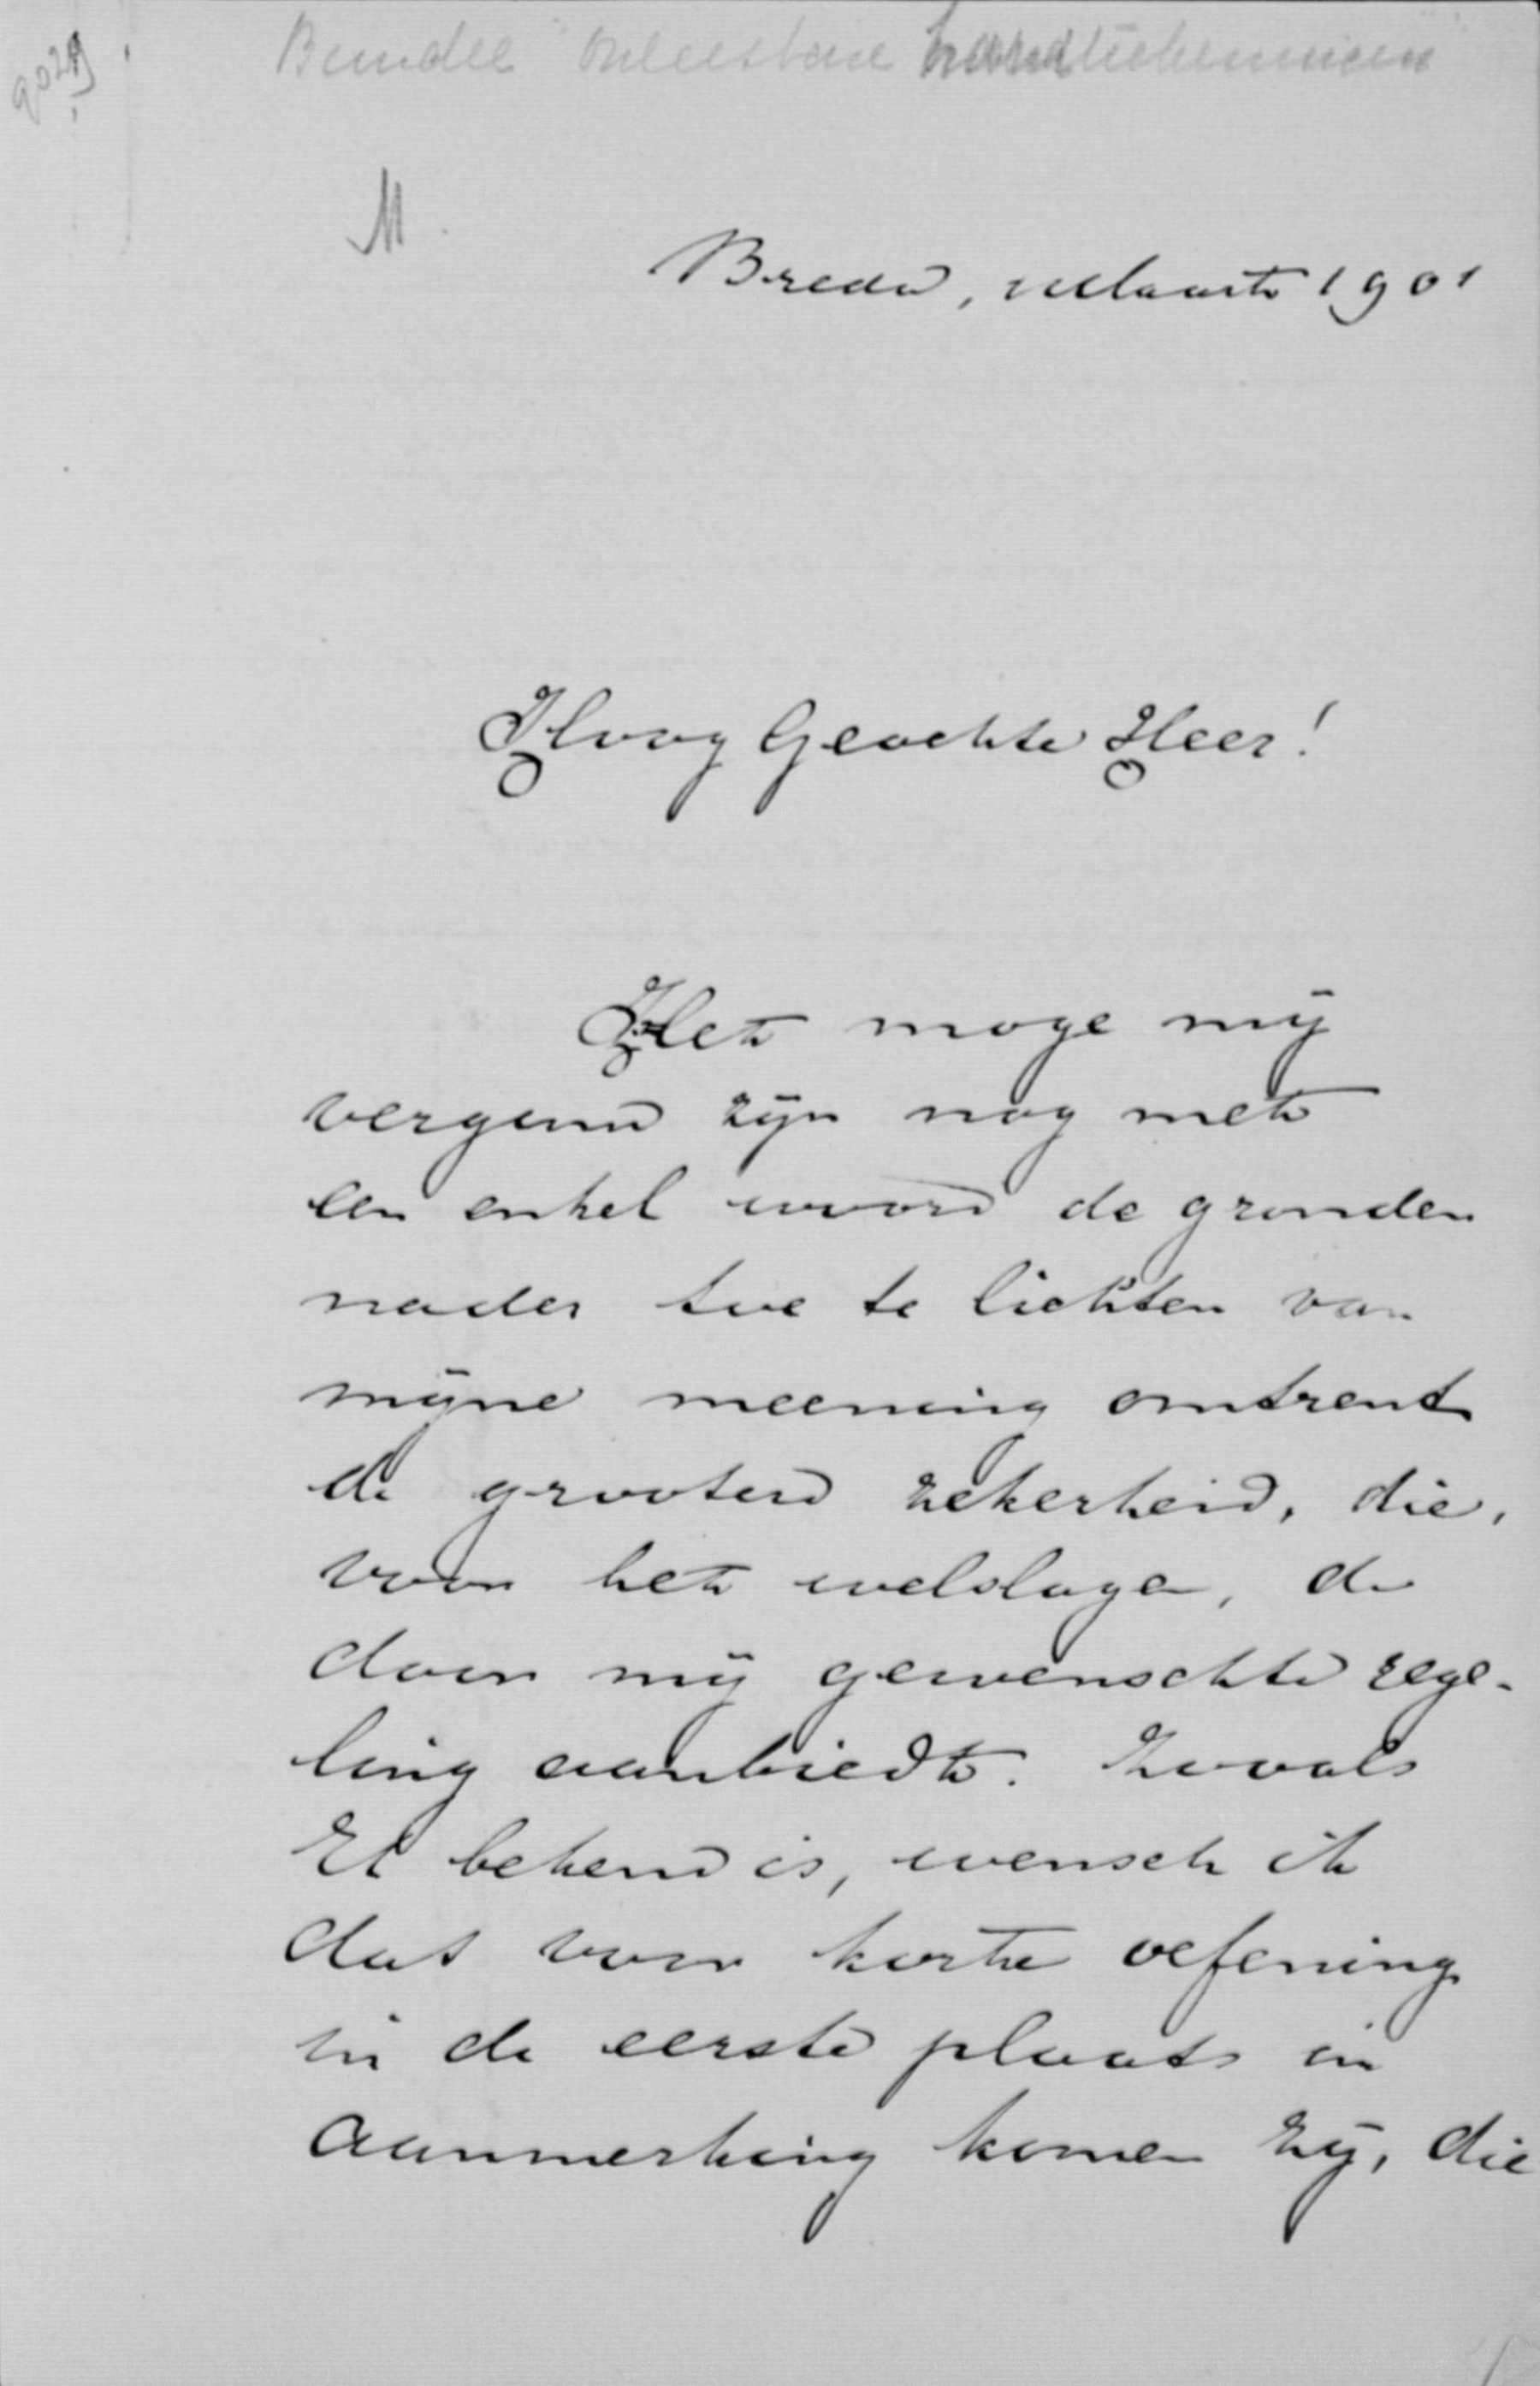 9029
Bundel onleesbare handteekeningen
M.
Breda, Maart 1901
Hoog Geachte Heer!
Het moge mij
vergund zijn nog met
een enkel woord de gronden
nader toe te lichten van
mijne meening omtrent
de grootere zekerheid, die,
voor het welslagen, de
door mij gewenschte rege-
ling aanbiedt. Zooals
U bekend is, wensch ik
dat voor korte oefening
in de eerste plaats in
aanmerking komen zij, die